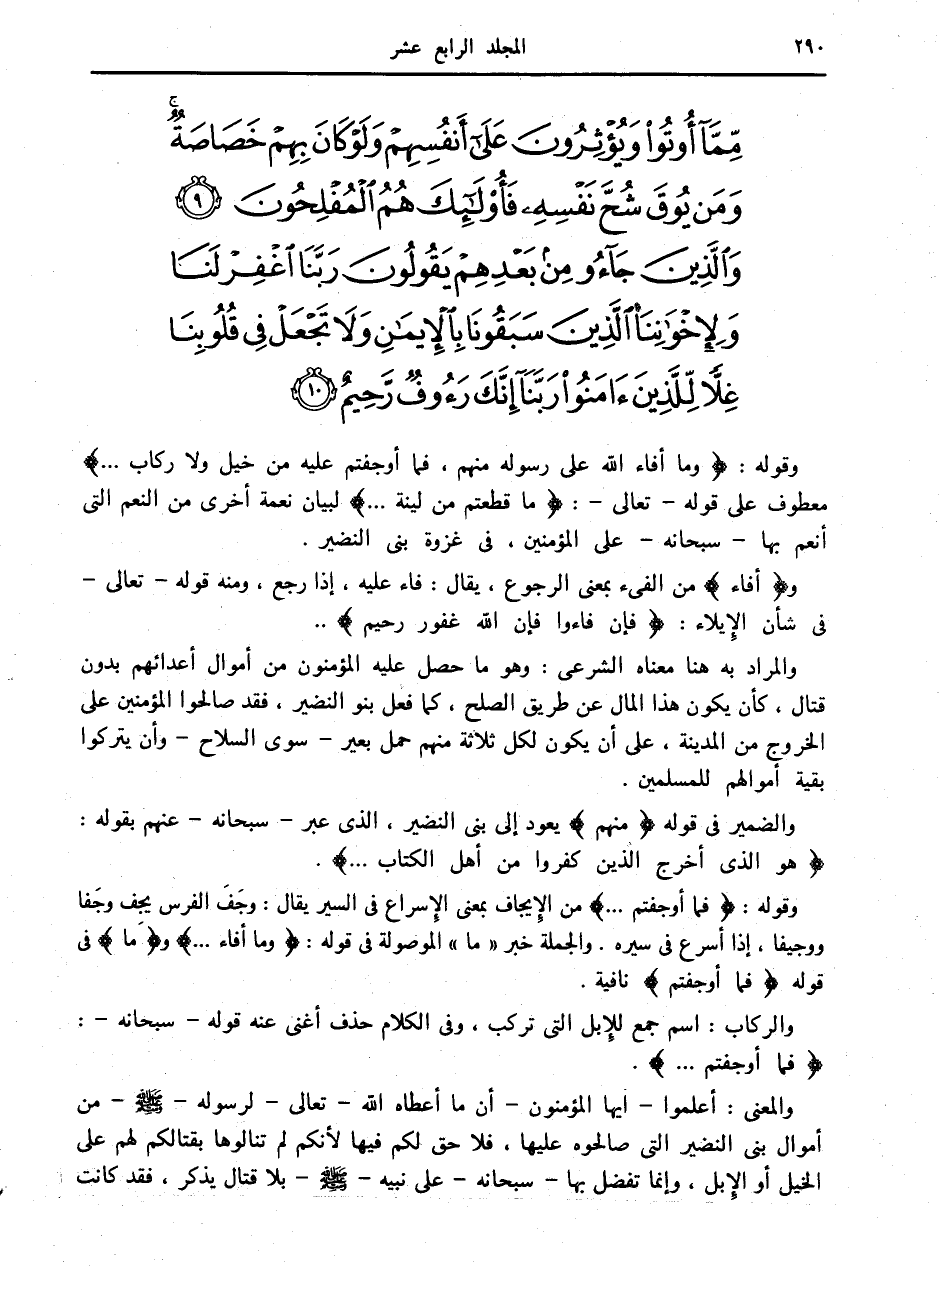 ٢٩٠ المجلد الرابع عشر
مِّمَّآ أُوتُوا۟ وَيُؤْثِرُونَ عَلَىٰٓ أَنفُسِهِمْ وَلَوْ كَانَ بِهِمْ خَصَاصَةٌ ۚ
وَمَن يُوقَ شُحَّ نَفْسِهِۦ فَأُو۟لَٰٓئِكَ هُمُ ٱلْمُفْلِحُونَ ٩
وَٱلَّذِينَ جَآءُو مِنۢ بَعْدِهِمْ يَقُولُونَ رَبَّنَا ٱغْفِرْ لَنَا
وَلِإِخْوَٰنِنَا ٱلَّذِينَ سَبَقُونَا بِٱلْإِيمَٰنِ وَلَا تَجْعَلْ فِى قُلُوبِنَا
غِلًّا لِّلَّذِينَ ءَامَنُوا۟ رَبَّنَآ إِنَّكَ رَءُوفٌ رَّحِيمٌ ١٠
وقوله : ﴿ وما أفاء الله على رسوله منهم ، فما أوجفتم عليه من خيل ولا ركاب ...﴾
معطوف على قوله - تعالى - : ﴿ ما قطعتم من لينة ...﴾ لبيان نعمة أخرى من النعم التى
أنعم بها - سبحانه - على المؤمنين ، فى غزوة بنى النضير .
و﴿ أفاء ﴾ من الفىء بمعنى الرجوع ، يقال : فاء عليه ، إذا رجع ، ومنه قوله - تعالى -
فى شأن الإيلاء : ﴿ فإن فاءوا فإن الله غفور رحيم ﴾ ..
والمراد به هنا معناه الشرعى : وهو ما حصل عليه المؤمنون من أموال أعدائهم بدون
قتال ، كأن يكون هذا المال عن طريق الصلح ، كما فعل بنو النضير ، فقد صالحوا المؤمنين على
الخروج من المدينة ، على أن يكون لكل ثلاثة منهم حمل بعير - سوى السلاح - وأن يتركوا
بقية أموالهم للمسلمين .
والضمير فى قوله ﴿ منهم ﴾ يعود إلى بنى النضير ، الذى عبر - سبحانه - عنهم بقوله :
﴿ هو الذى أخرج الذين كفروا من أهل الكتاب ...﴾ .
وقوله : ﴿ فما أوجفتم ...﴾ من الإيجاف بمعنى الإسراع فى السير يقال : وجَفَ الفرس يجِف وجْفا
ووجيفا ، إذا أسرع فى سيره . والجملة خبر « ما » الموصولة فى قوله : ﴿ وما أفاء ...﴾ و﴿ ما ﴾ فى
قوله ﴿ فما أوجفتم ﴾ نافية .
والركاب : اسم جمع للإبل التى تركب ، وفى الكلام حذف أغنى عنه قوله - سبحانه - :
﴿ فما أوجفتم ... ﴾ .
والمعنى : أعلموا - ايها المؤمنون - أن ما أعطاه الله - تعالى - لرسوله - ﷺ - من
أموال بنى النضير التى صالحوه عليها ، فلا حق لكم فيها لأنكم لم تنالوها بقتالكم لهم على
الخيل أو الإبل ، وإنما تفضل بها - سبحانه - على نبيه - ﷺ - بلا قتال يذكر ، فقد كانت